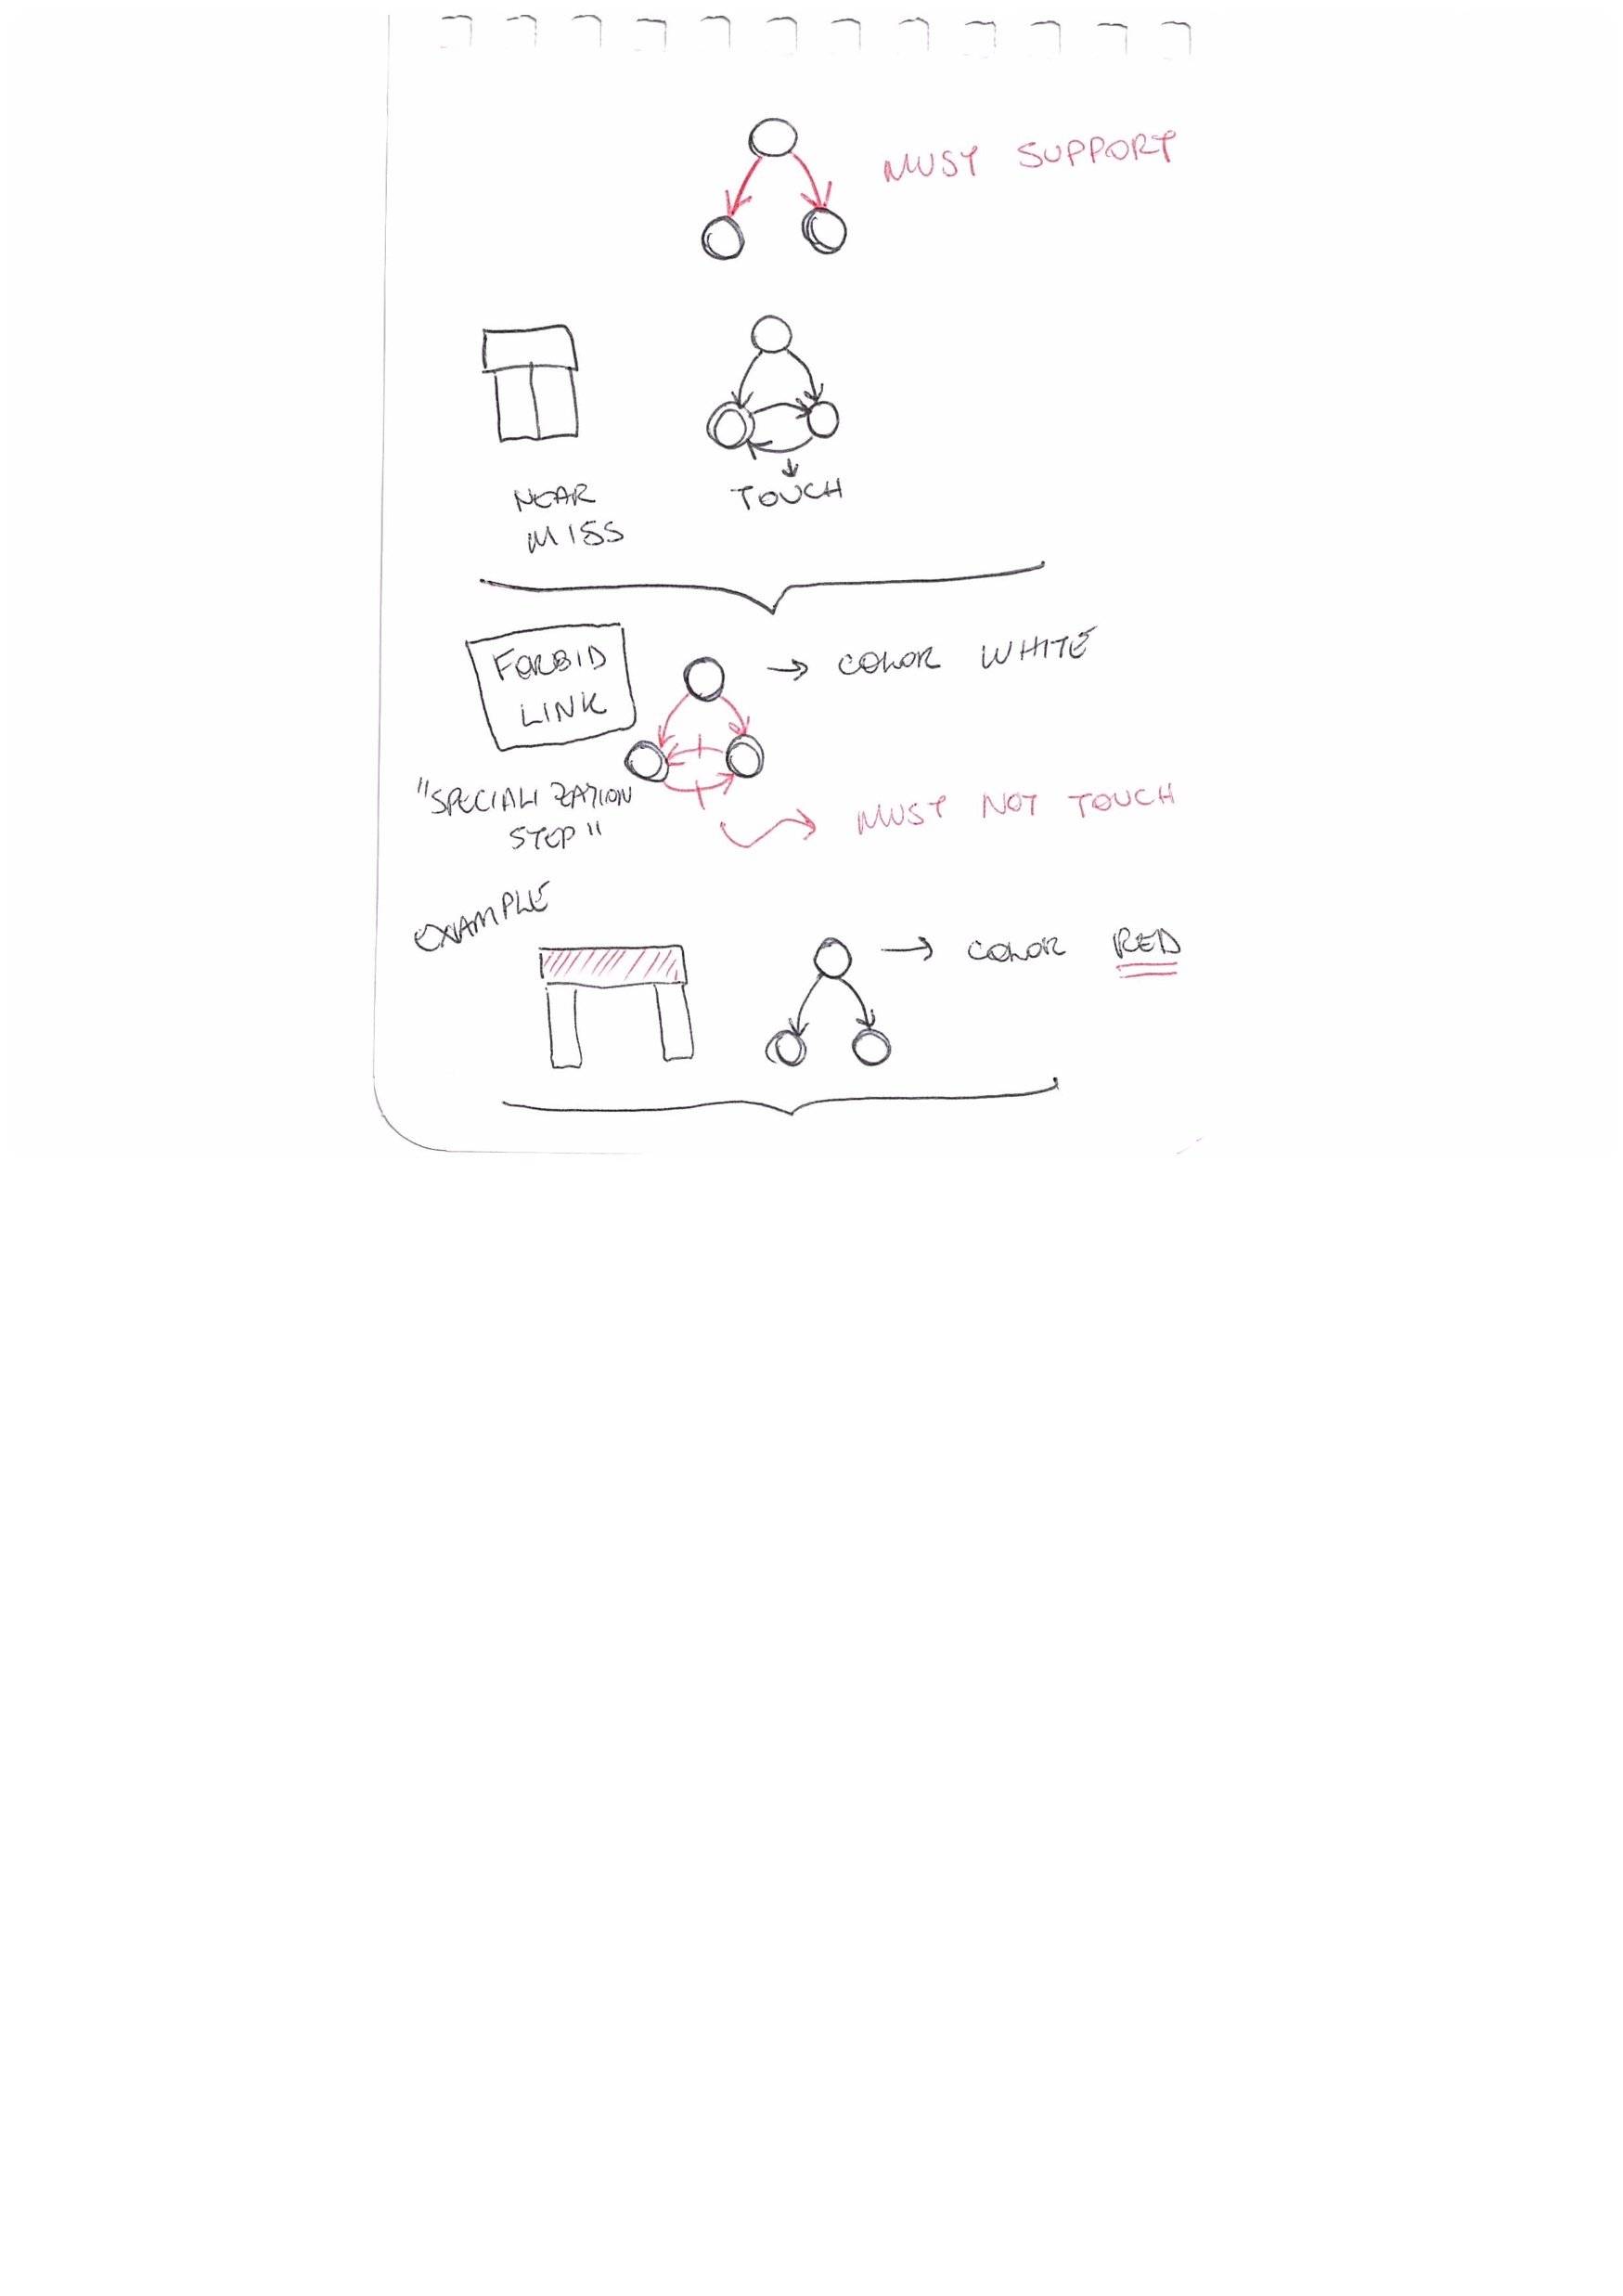 MUST SUPPORT
NEAR
MISS
TOUCH
FORBID
LINK
COLOR WHITE
"SPECIALIZATION
STEP"
MUST NOT TOUCH
EXAMPLE
COLOR RED